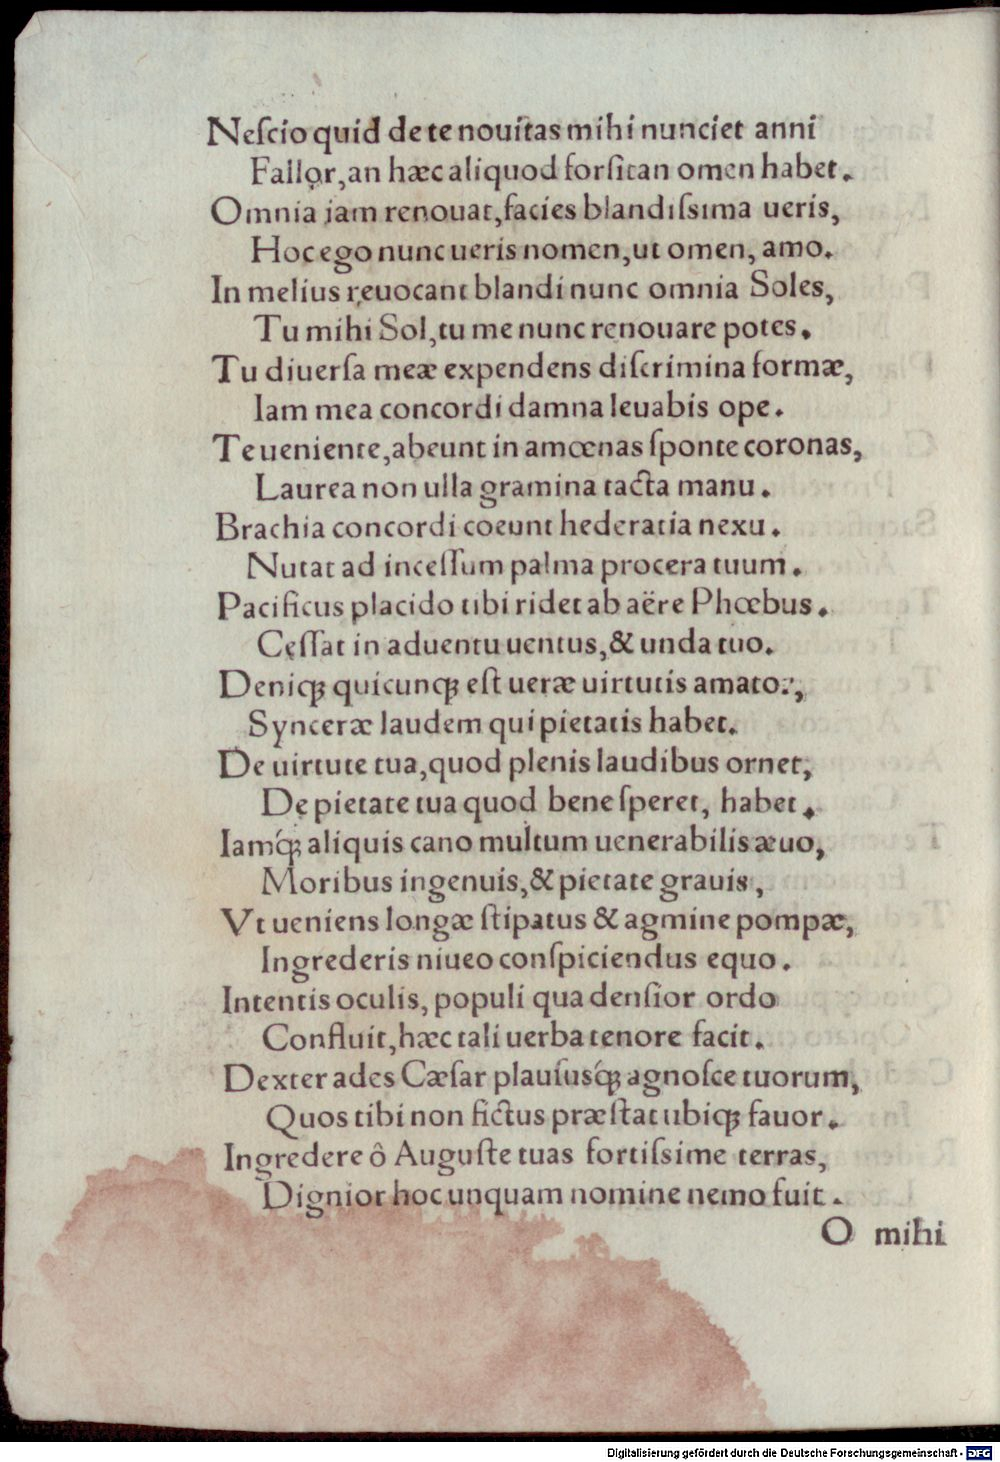 Neſcio quid de te nouitas mihi nunciet anni
Fallor, an hæc aliquod forſitan omen habet.
Omnia iam renouat, facies blandiſsima ueris,
Hoc ego nunc ueris nomen, ut omen, amo.
In melius reuocant blandi nunc omnia Soles,
Tu mihi Sol, tu me nunc renouare potes.
Tu diuerſa meæ expendens diſcrimina formæ,
Iam mea concordi damna leuabis ope.
Te ueniente, abeunt in amœnas ſponte coronas,
Laurea non ulla gramina tacta manu.
Brachia concordi coeunt hederatia nexu.
Nutat ad inceſſum palma procera tuum.
Pacificus placido tibi ridet ab aëre Phœbus.
Ceſſat in aduentu uentus, & unda tuo.
Deniqꝫ quicunqꝫ eſt ueræ uirtutis amator,
Synceræ laudem qui pietatis habet.
De uirtute tua, quod plenis laudibus ornet,
De pietate tua quod bene ſperet, habet.
Iamqꝫ́ aliquis cano multum uenerabilis æuo,
Moribus ingenuis, & pietate grauis,
Vt ueniens longæ ſtipatus & agmine pompæ,
Ingrederis niueo conſpiciendus equo.
Intentis oculis, populi qua denſior ordo
Confluit, hæc tali uerba tenore facit.
Dexter ades Cæſar plauſusqꝫ́ agnoſce tuorum,
Quos tibi non fictus præſtat ubiqꝫ fauor.
Ingredere ô Auguſte tuas fortiſsime terras,
Dignior hoc unquam nomine nemo fuit.
O mihi
Digitalisierung gefördert durch die Deutsche Forschungsgemeinschaft - DFG